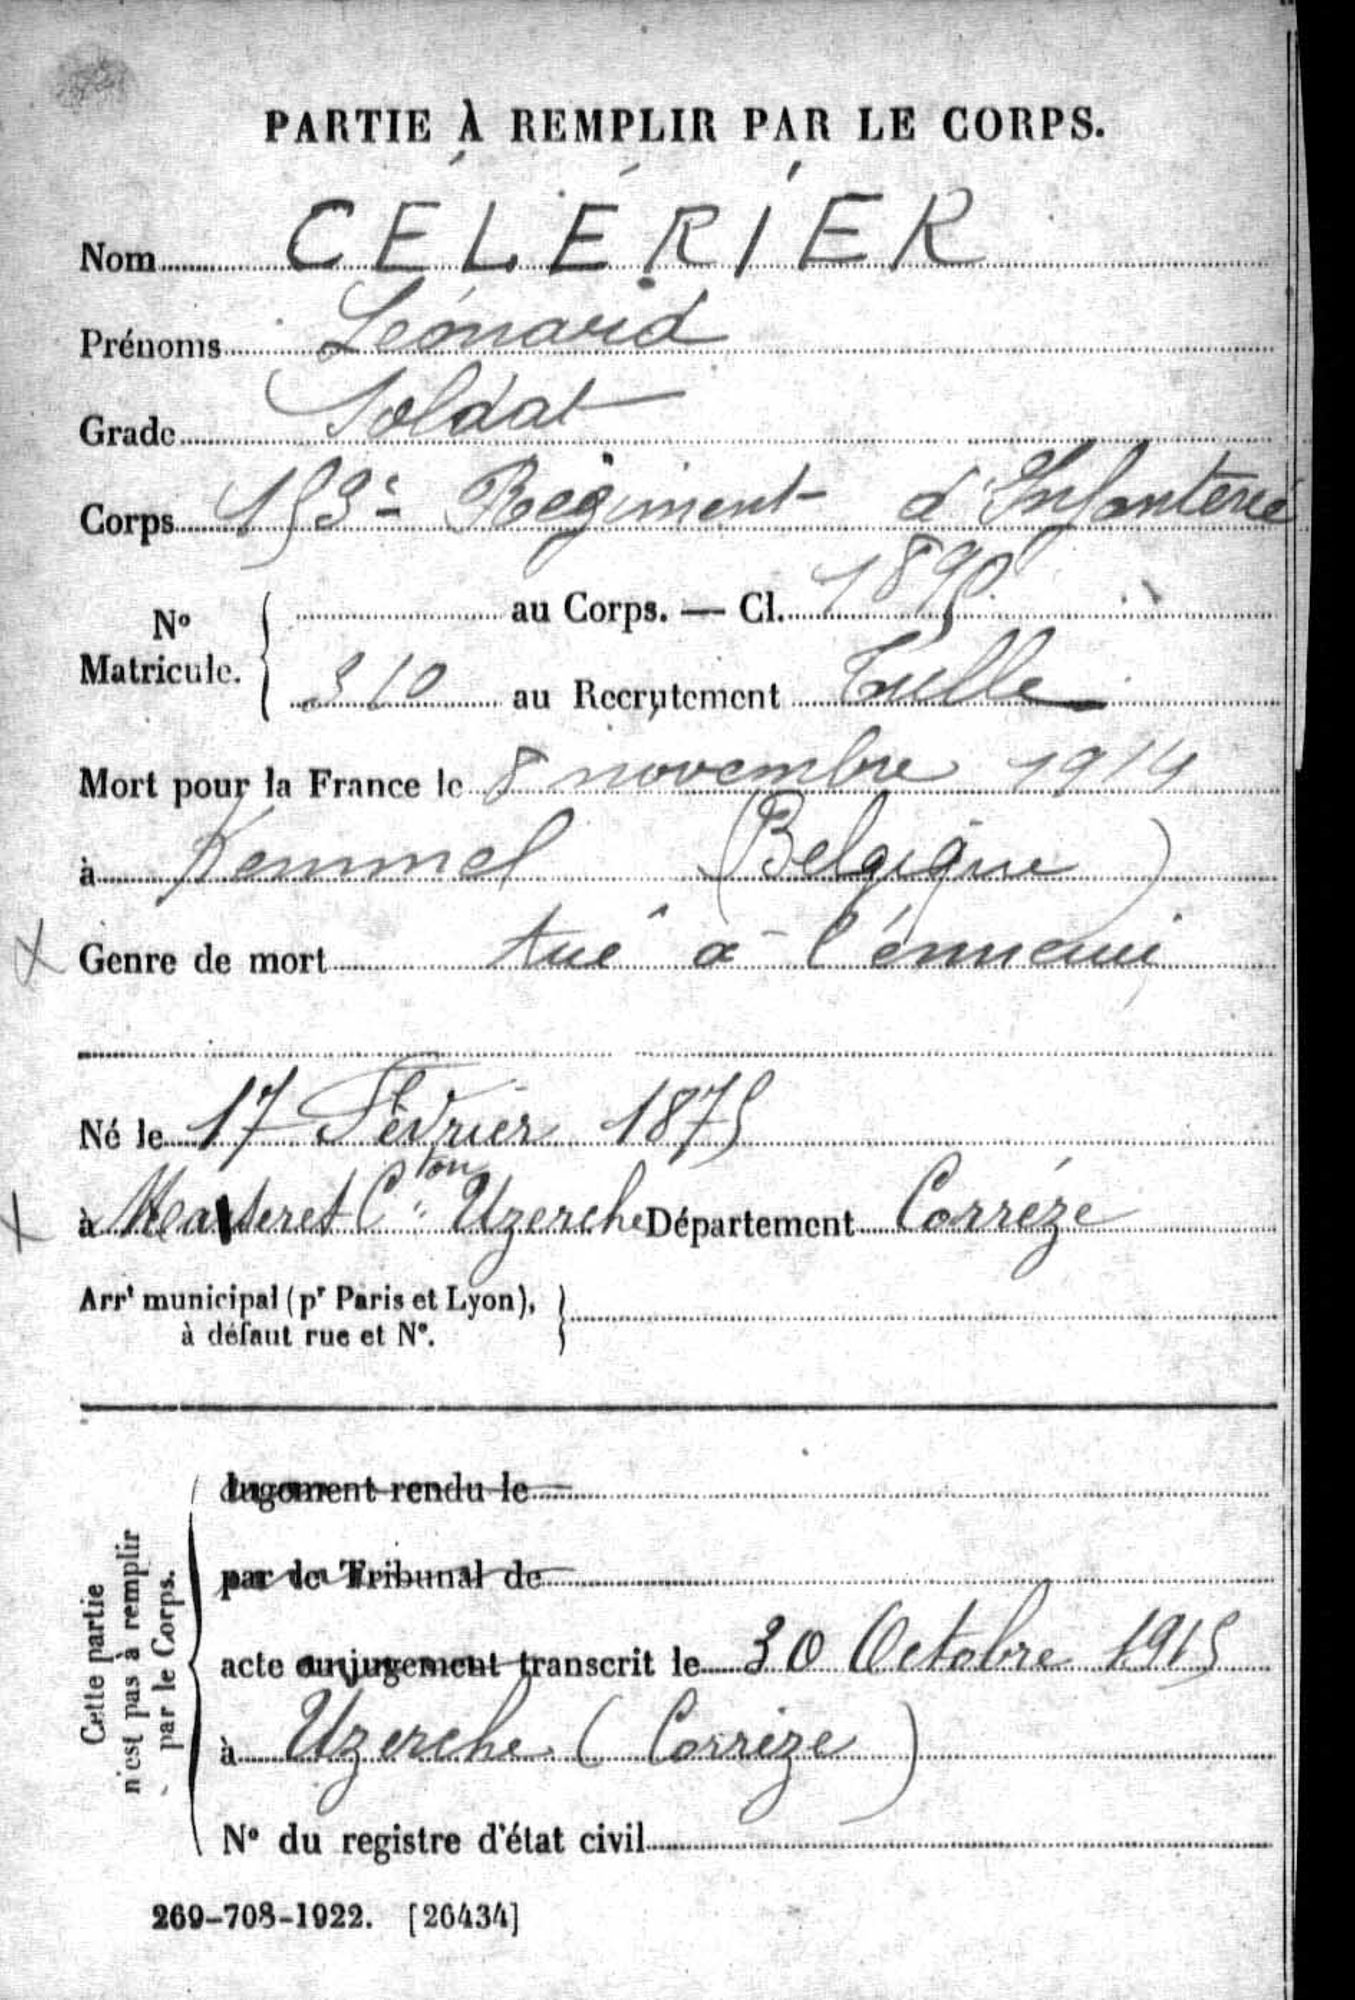 PARTIE À REMPLIR PAR LE CORPS.
Nom CÉLÉRIER
Prénoms Léonard
Grade Soldat
Corps 153e Régiment d'Infanterie
No Matricule. { au Corps. — Cl. 1895
310 au Recrutement Tulle
Mort pour la France le 8 novembre 1914
à Kemmel (Belgique)
Genre de mort tué à l'énnemi
Né le 17 Février 1875
à Masseret Cton Uzerche Département Corrèze
Arrt municipal (pr Paris et Lyon), à défaut rue et No. }
Cette partie n'est pas à remplir par le Corps.
Jugement rendu le
par le Tribunal de
acte ou jugement transcrit le 30 Octobre 1915
à Uzerche (Corrèze)
No du registre d'état civil
269-708-1922. [26434]